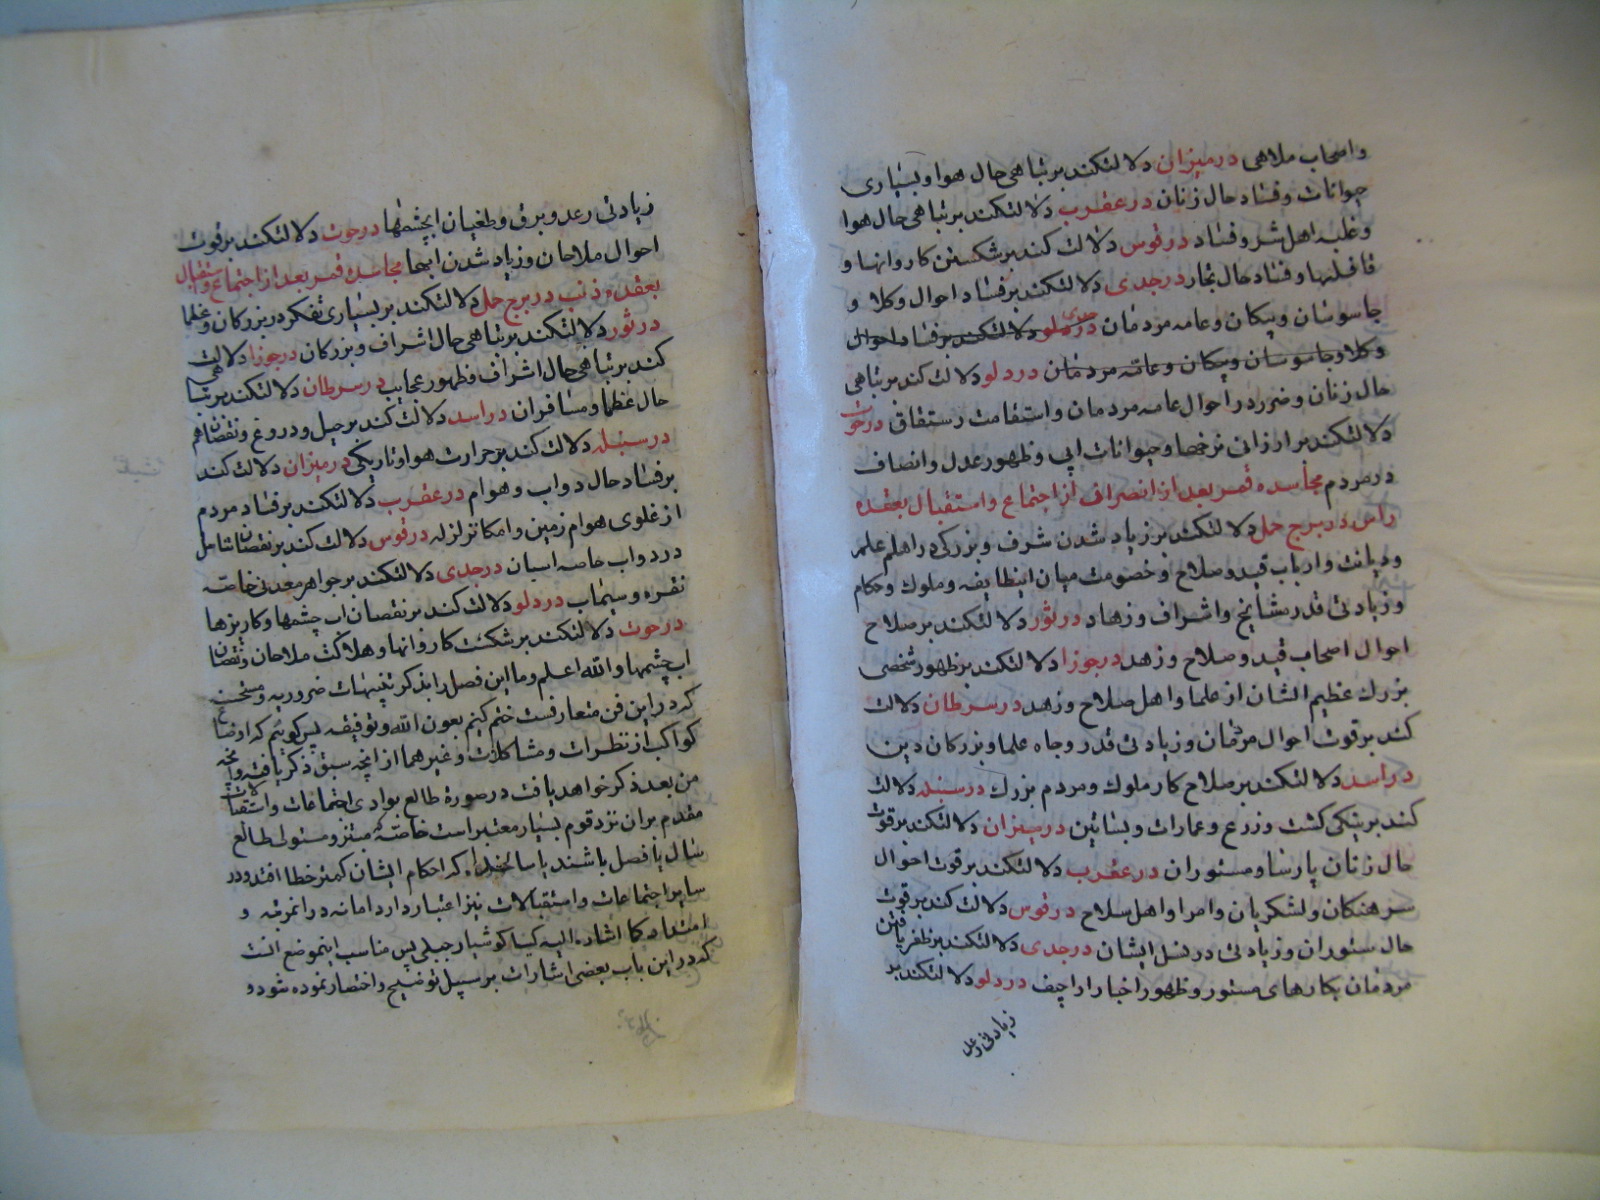 واصحاب ملاهی در میزان دلالتکند بر تباهی حال هوا و بسیاری
حیوانات و فساد حال زنان در عقرب دلالتکند بر تباهی حال هوا
و غلبه اهل شر و فساد در قوس دلالت کند بر شکستن کاروانها و
قافلها و فساد حال تجار در جدی دلالتکند بر فساد احوال وکلا و
جاسوسان و پیکان و عامه مردمان در دلو دلالتکند بر فساد احوال
وکلا و جاسوسان و پیکان و عامه مردمان در دلو دلالت کند بر تباهی
حال زنان و ضرر در احوال عامه مردمان و استقامت رستقاق در حوت
دلالتکند بر ارزانی نرخها و حیوانات ابی و ظهور عدل و انصاف
در مردم مجاسده قمر بعد از انصراف از اجتماع و استقبال بعقده
راس در برج حمل دلالتکند بر زیاد شدن شرف و بزرکی در اهل علم
و دیانت و ارباب قید و صلاح و خصومت میان اینطایفه و ملوک و حکام
و زیادتی قدر مشایخ و اشراف و زهاد در ثور دلالتکند بر صلاح
احوال اصحاب قید و صلاح و زهد در جوزا دلالتکند بر ظهور شخصی
بزرک عظیم الشان از علما و اهل صلاح و زهد در سرطان دلالت
کند بر قوت احوال مردمان و زیادتی قدر و جاه علما و بزرکان دین
در اسد دلالتکند بر صلاح کار ملوک و مردم بزرک در سنبله دلالت
کند بر نیکی کشت و زرع و عمارات و بساتین در میزان دلالتکند بر قوت
حال زنان پارسا و مستوران در عقرب دلالتکند بر قوت احوال
سرهنکان و لشکریان و امرا و اهل سلاح در قوس دلالت کند بر قوت
حال ستوران و زیادتی در نسل ایشان در جدی دلالتکند بر ظفر یافتن
مردمان بکارهای مستور و ظهور اخبار اراجیف در دلو دلالتکند بر
زیادتی رعد
زیادتی رعد و برق و طغیان ابچشمها در حوت دلالتکند بر قوت
احوال ملاحان و زیاد شدن ابها مجاسده قمر بعد از اجتماع و استقبال
بعقده ذنب در برج حمل دلالتکند بر بسیاری تفکر در بزرکان و علما
در ثور دلالتکند بر تباهی حال اشراف و بزرکان در جوزا دلالت
کند بر تباهی حال اشراف و ظهور عجایب در سرطان دلالتکند بر تباهی
حال عظما و مسافران در اسد دلالت کند بر حیل و دروغ و نقصان
در سنبله دلالت کند بر حرارت هوا و تاریکی در میزان دلالت کند
بر فساد حال دواب و هوام در عقرب دلالتکند بر فساد مردم
از غلوی هوام زمین و امکان زلزله در قوس دلالت کند بر نقصان تناسل
در دواب خاصه اسبان در جدی دلالتکند بر جواهر معدنی خاصه
نقره و سیماب در دلو دلالت کند بر نقصان اب چشمها و کاریزها
در حوت دلالتکند بر شکست کاروانها و هلاکت ملاحان و نقصان
اب چشمها و الله اعلم و ما این فصل را بذکر تنبیهات ضروریه
که در این فن متعارفست ختم کنیم بعون الله و توفیقه پس کوییم که اوضاع
کواکب از نظرات و مشاکلات و غیرهما از انچه سبق ذکر یافته و انچه
من بعد ذکر خواهد یافت در صورة طالع بوادی اجتماعات و استقبالات
مقدم بران نزد قوم بسیار معتبر است خاصة که مستولی طالع
سال یا فصل باشند یا سالخدا که احکام ایشان کمتر خطا افتد و در
سایر اجتماعات و استقبالات نیز اعتبار دارد اما نه در انمرتبه و
امتداد کما اشار الیه کیا کوشیار جیلی پس مناسب اینموضع انست
که در این باب بعضی اشارات بر سبیل توضیح و اختصار نموده شود و